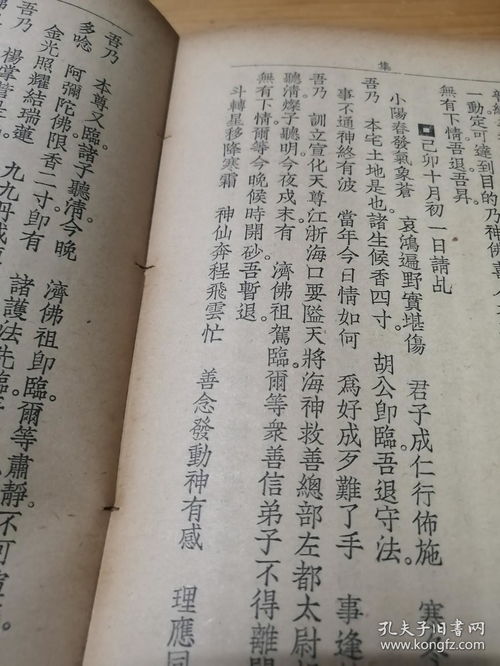 集
一動定可達到目的乃神佛
無有下情吾退吾昇
己卯十月初一日請乩
小陽春發氣象蒼 哀鴻遍野實堪傷 君子成仁行佈施 寒
吾乃 本宅土地是也。諸生候香四寸。 胡公卽臨。吾退守法。
事不通神終有波 當年今日情如何 爲好成歹難了手 事逢
吾乃 訓立宣化天尊江浙海口要隘天將海神救善總部左都太尉
聽清燦子聽明今夜戌末有 濟佛祖駕臨。爾等衆善信弟子一不得離開
無有下情爾等今晚候時開砂吾暫退
斗轉星移降寒霜 神仙奔程飛雲忙 善念發動神有感 理應同
吾乃 本尊又臨。諸子聽清今晚 濟佛祖卽臨。爾等肅靜。不可
多唸 阿彌陀佛限香二寸卽有 諸護法先臨
金光照耀結瑞蓮 九九丹成
楊掌管是
孔夫子旧书网
book.kongfz.com